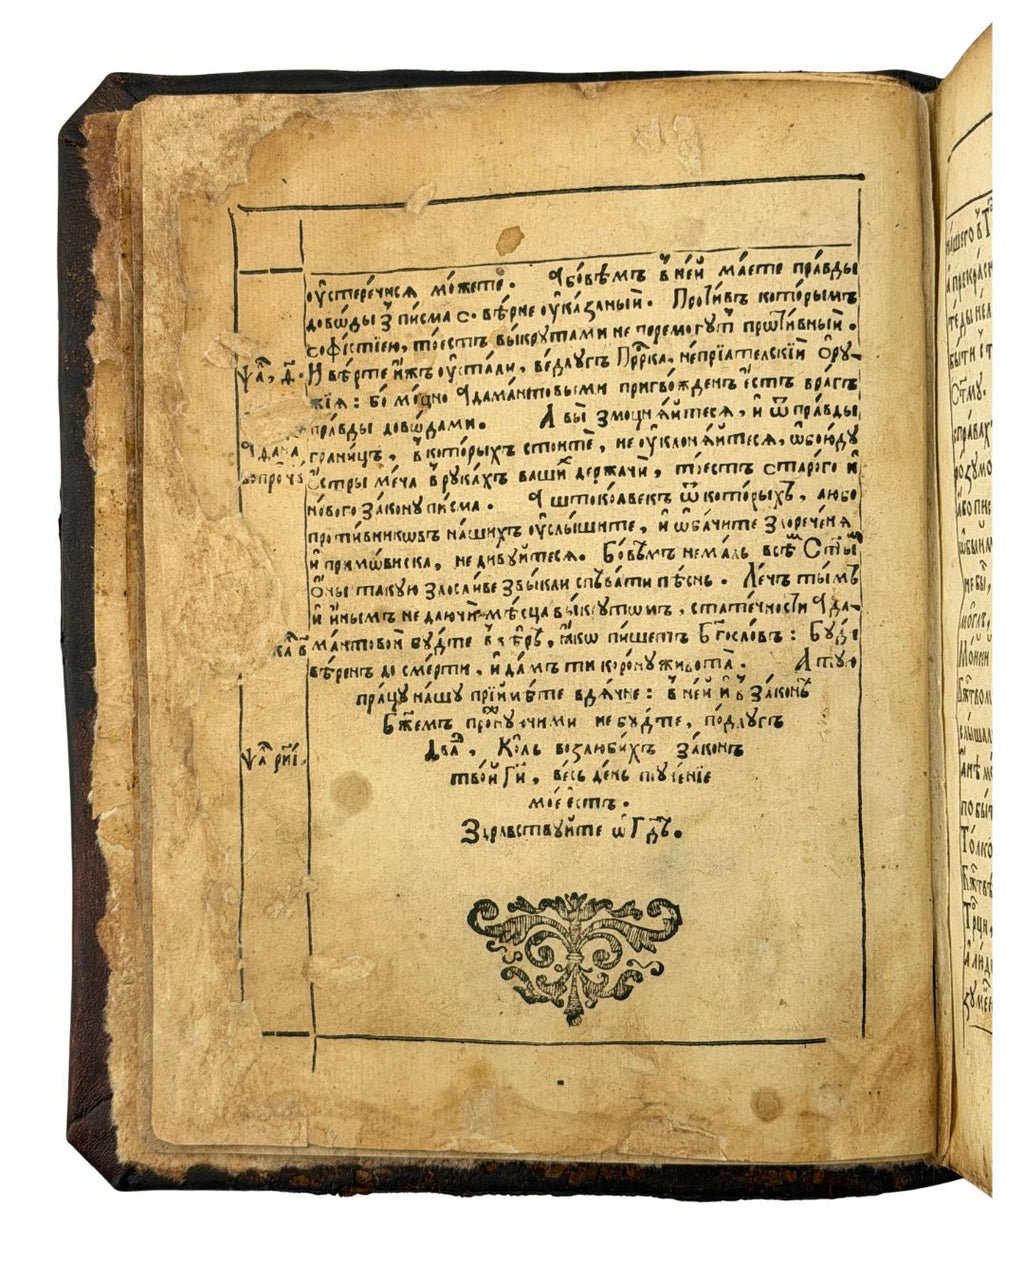 оустеречися можете. Ꙗбовѣмъ в ней маете правды
довѡды з писма о вѣрне оуказаный. Противъ которымъ
софистіею, тоестъ выкрутами не перемогут противный.
Ѱа, д. И вѣрте ижъ оустали, ведлугъ Прⷪрка, непріателскій Ору-
жїя: бо моцно Адамантовыми пригвожденъ естъ врагъ
правды довѡдами. А вы змоцняйтеся, и ѿ правды
Адама, границъ, в которыхъ стоите, не оуклоняйтеся, ѡбоюду
вопрочъ остры меча в рукахъ ваши держачи, тоестъ старого и
нового закону писма. А штоколвекъ ѿ которыхъ, любо
противникѡвъ нашихъ оуслышите, и ѡбачите злоречения
и примѡвиска, не дивуйтеся. Бовѣмъ не малъ всѣ Стым
Оны такую злосливе звыкли спѣвати пѣснь. Лечъ тымъ
и инымъ не даючи мѣсца выкрутѡмъ, статечности Ада-
мантовой будте в вѣрѣ, ꙗкѡ пишетъ Бгословъ: Буди
вѣренъ до смерти, и дамъ ти корону живота. А тую
працу нашу пріймѣте вдячне: в ней и в законѣ
Бжемъ проⷨнуючими не будте, подлугъ
Двда, Коль возлюбихъ законъ
Ѱа риі. твой Ги, весь день поученіе
мое естъ.
Здравствуйте ѡ Гдѣ.
нашего в
а прекрасн
теды не
быти
справахъ
розумо
або пис
ѡбоим
не бы,
могл
Мойсей
Бжтвом
слышал
по быт
Толко
Бжтвѣ
Трци,
а люд
зумѣ